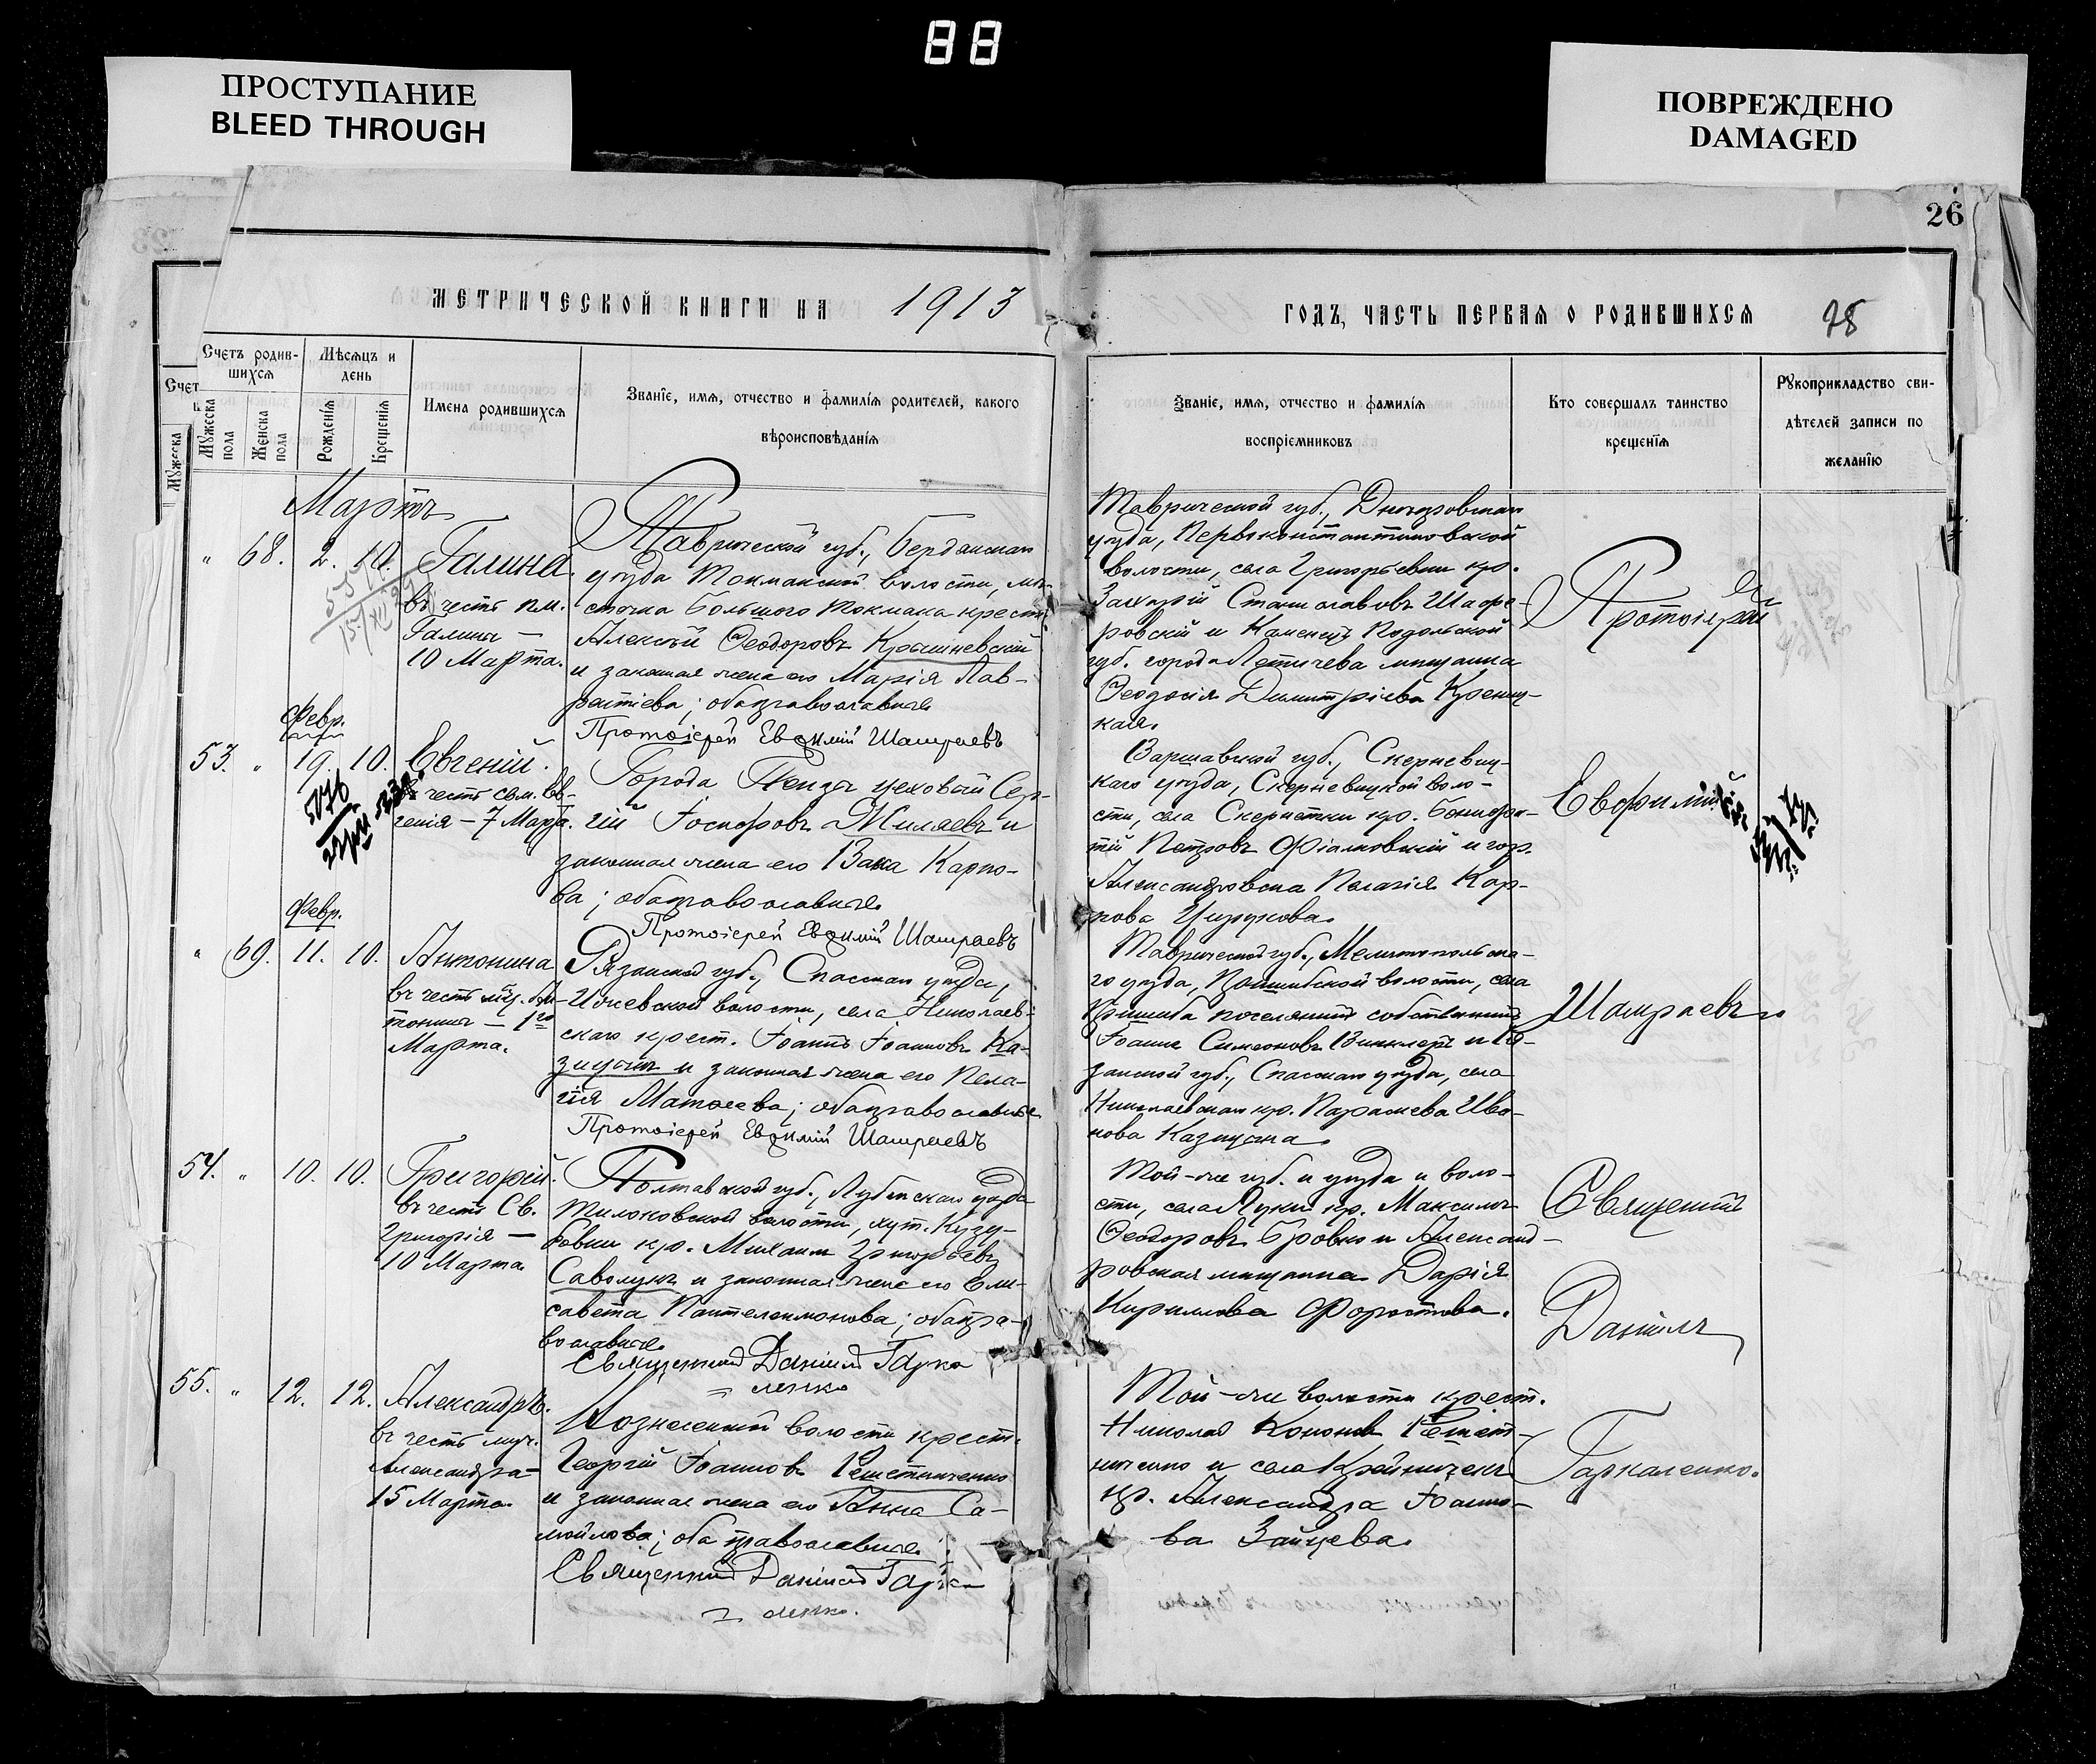 88
ПРОСТУПАНИЕ
BLEED THROUGH
ПОВРЕЖДЕНО
DAMAGED
26
МЕТРИЧЕСКОЙ КНИГИ НА 1913
ГОДЪ, ЧАСТЬ ПЕРВАЯ О РОДИВШИХСЯ
Счетъ родив-
шихся
Мѣсяцъ и
день
Счет
Мужеска
Мужеска
пола
Женска
пола
Рожденія
Крещенія
Имена родившихся
Званіе, имя, отчество и фамилія родителей, какого
вѣроисповѣданія
Званіе, имя, отчество и фамилія
воспріемниковъ
Кто совершалъ таинство
крещенія
Рукоприкладство сви-
дѣтелей записи по
желанію
Мартъ
" 68. 2. 10. Галина
въ честь пм.
Галины —
10 Марта.
Таврической губ., Бердянскаго
уѣзда Токмакской волости, мѣ-
стечка Большого Токмака крест.
Алексѣй Ѳеодоровъ Крышневскій
и законная жена его Марія Лав-
рентіева; оба православные
Протоіерей Евѳимій Шамраевъ
Таврической губ., Днепровскаго
уѣзда, Первоконстантиновской
волости, села Григорьевки кр.
Захарій Станиславовъ
и Каменецъ Подольской
губ. города Летичева мѣщанка
Ѳеодосія Димитріева
кая.
Протоіерей
Февр.
53. " 19. 10. Евгеній.
въ честь свм. Ев-
генія — 7 Марта.
Города Пензы цеховый Сер-
гій Іосифовъ Жиляевъ и
законная жена его Васса Карпо-
ва; оба православные
Протоіерей Евѳимій Шамраевъ
Варшавской губ., Скерневиц-
каго уѣзда, Скерневицкой воло-
сти, села кр. Бонифа-
тій Петровъ Фіалковскій и гор.
Александровска Пелагія Кар-
пова
Евфимій
Февр.
" 69. 11. 10. Антонина
въ честь мц. Ан-
тонины — 1го
Марта.
Рязанской губ., Спасскаго уѣзда,
Ижевской волости, села Николаев-
скаго крест. Іоаннъ Іоанновъ Ка-
зицынъ и законная жена его Пела-
гія Матѳеева; оба православные
Протоіерей Евѳимій Шамраевъ
Таврической губ., Мелитопольска-
го уѣзда, Пришибской волости, села
Пришиба поселянинъ собственникъ
Іоаннъ Симеоновъ Винклеръ и Ря-
занской губ., Спасскаго уѣзда, села
Николаевскаго кр. Параскева Ива-
нова Казицына
Шамраевъ
54. " 10. 10. Григорій.
въ честь Св.
Григорія —
10 Марта
Полтавской губ., Лубенскаго уѣзда
волости, хут. Кузу-
бовки кр. Михаилъ Григорьевъ
Саволукъ и законная жена его Ели-
савета Пантелеимонова; оба пра-
вославные
Священникъ Даніилъ Гарка-
ленко
Той-же губ. и уѣзда и воло-
сти, села Луки кр. Максимъ
Ѳеодоровъ Бровко и Александ-
ровская мѣщанка Дарія
Кириллова Форостова.
Священникъ
Даніилъ
55. " 12. 12. Александръ.
въ честь муч.
Александра —
15 Марта.
Вознесенской волости крест.
Георгій Іоанновъ Решетниченко
и законная жена его Анна Са-
мойлова; оба православные
Священникъ Даніилъ Гарка-
ленко.
Той-же волости крест.
Николай Кононовъ Решет-
ниченко и села
кр. Александра Іоанно-
ва Зайцева.
Гаркаленко.